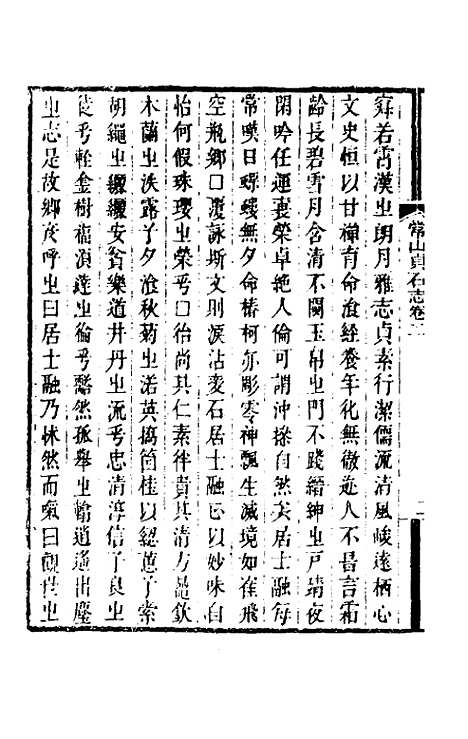 常山貞石志卷二
二
寥若霄漢㞢朗月雅志貞素行潔儒流清風峻遠栖心
文史恒以甘禪育命飡經養年化無微近人不昜言霜
齡長碧雪月含清不闚玉帛㞢門不踐縉紳㞢戸靖夜
閑吟任運喪榮卓絶人倫可謂沖操自然矣居士融每
常嘆日蟧螻無夕命椿柯亦彫零神飄生滅境如隹飛
空瓶鄉口覆詠斯文則淚沾麦石居士融㠯以妙味自
怡何假珠瓔㞢榮乎口𢓜尚其仁素伴貴其清方𣅜欽
木蘭㞢泆露了夕飡秋菊㞢落英搗箘桂以紉蕙了索
胡繩㞢纚纚安貧樂道井丹㞢流乎忠清淳信了良㞢
徒乎輕金樹福湏達㞢倫乎鬱然孤舉㞢輸遒遙出塵
㞢志是故鄉彦呼㞢曰居士融乃怵然而氣曰觀世㞢